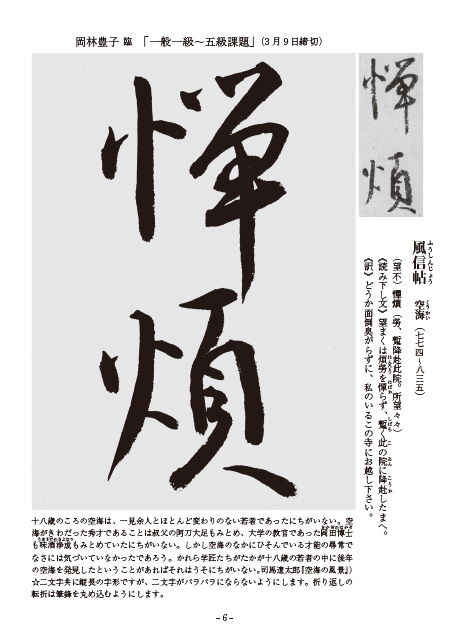 岡林豊子 臨 「一般一級～五級課題」（3月9日締切）
憚
煩
憚
煩
風信帖 空海（七七四～八三五）
ふうしんじょう くうかい
（望不）憚煩（労、暫降赴此院。所望々々）
《読み下し文》望まくは煩労を憚らず、暫く此の院に降赴したまへ。
《訳》どうか面倒臭がらずに、私のいるこの寺にお越し下さい。
十八歳のころの空海は、一見余人とほとんど変わりのない若者であったにちがいない。空
海がきわだった秀才であることは叔父の阿刀大足もみとめ、大学の教官であった岡田博士
も味酒浄成もみとめていたにちがいない。しかし空海のなかにひそんでいる才能の尋常で
なさには気づいていなかったであろう。かれら学匠たちがたかが十八歳の若者の中に後年
の空海を発見したということがあればそれはうそにちがいない。司馬遼太郎『空海の風景』）
☆二文字共に縦長の字形ですが、二文字がバラバラにならないようにします。折り返しの
転折は筆鋒を丸め込むようにします。
－6－